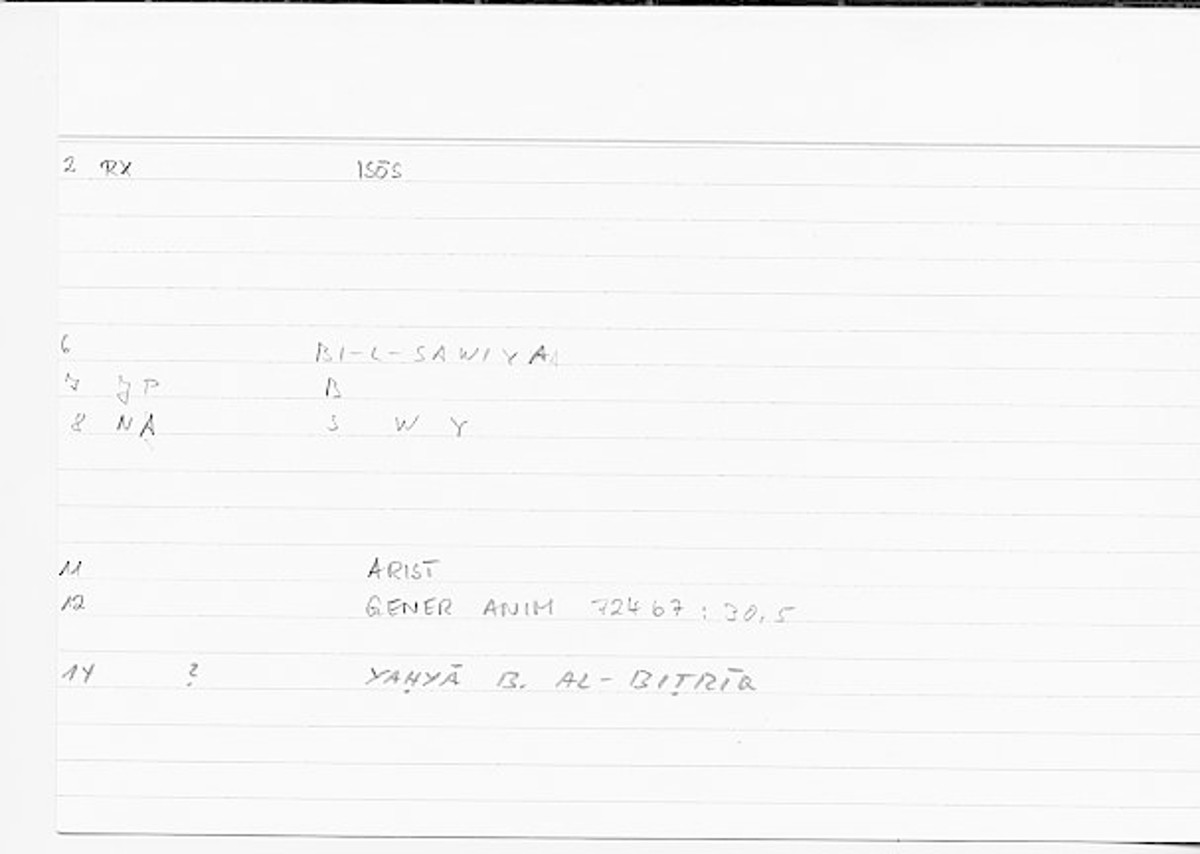 2 RX ISŌS
6 BI-L-SAWIYA
7 JP B
8 NA S W Y
11 ARIST
12 GENER ANIM 724b7 : 30,5
14 ? YAḤYĀ B. AL-BIṬRĪQ